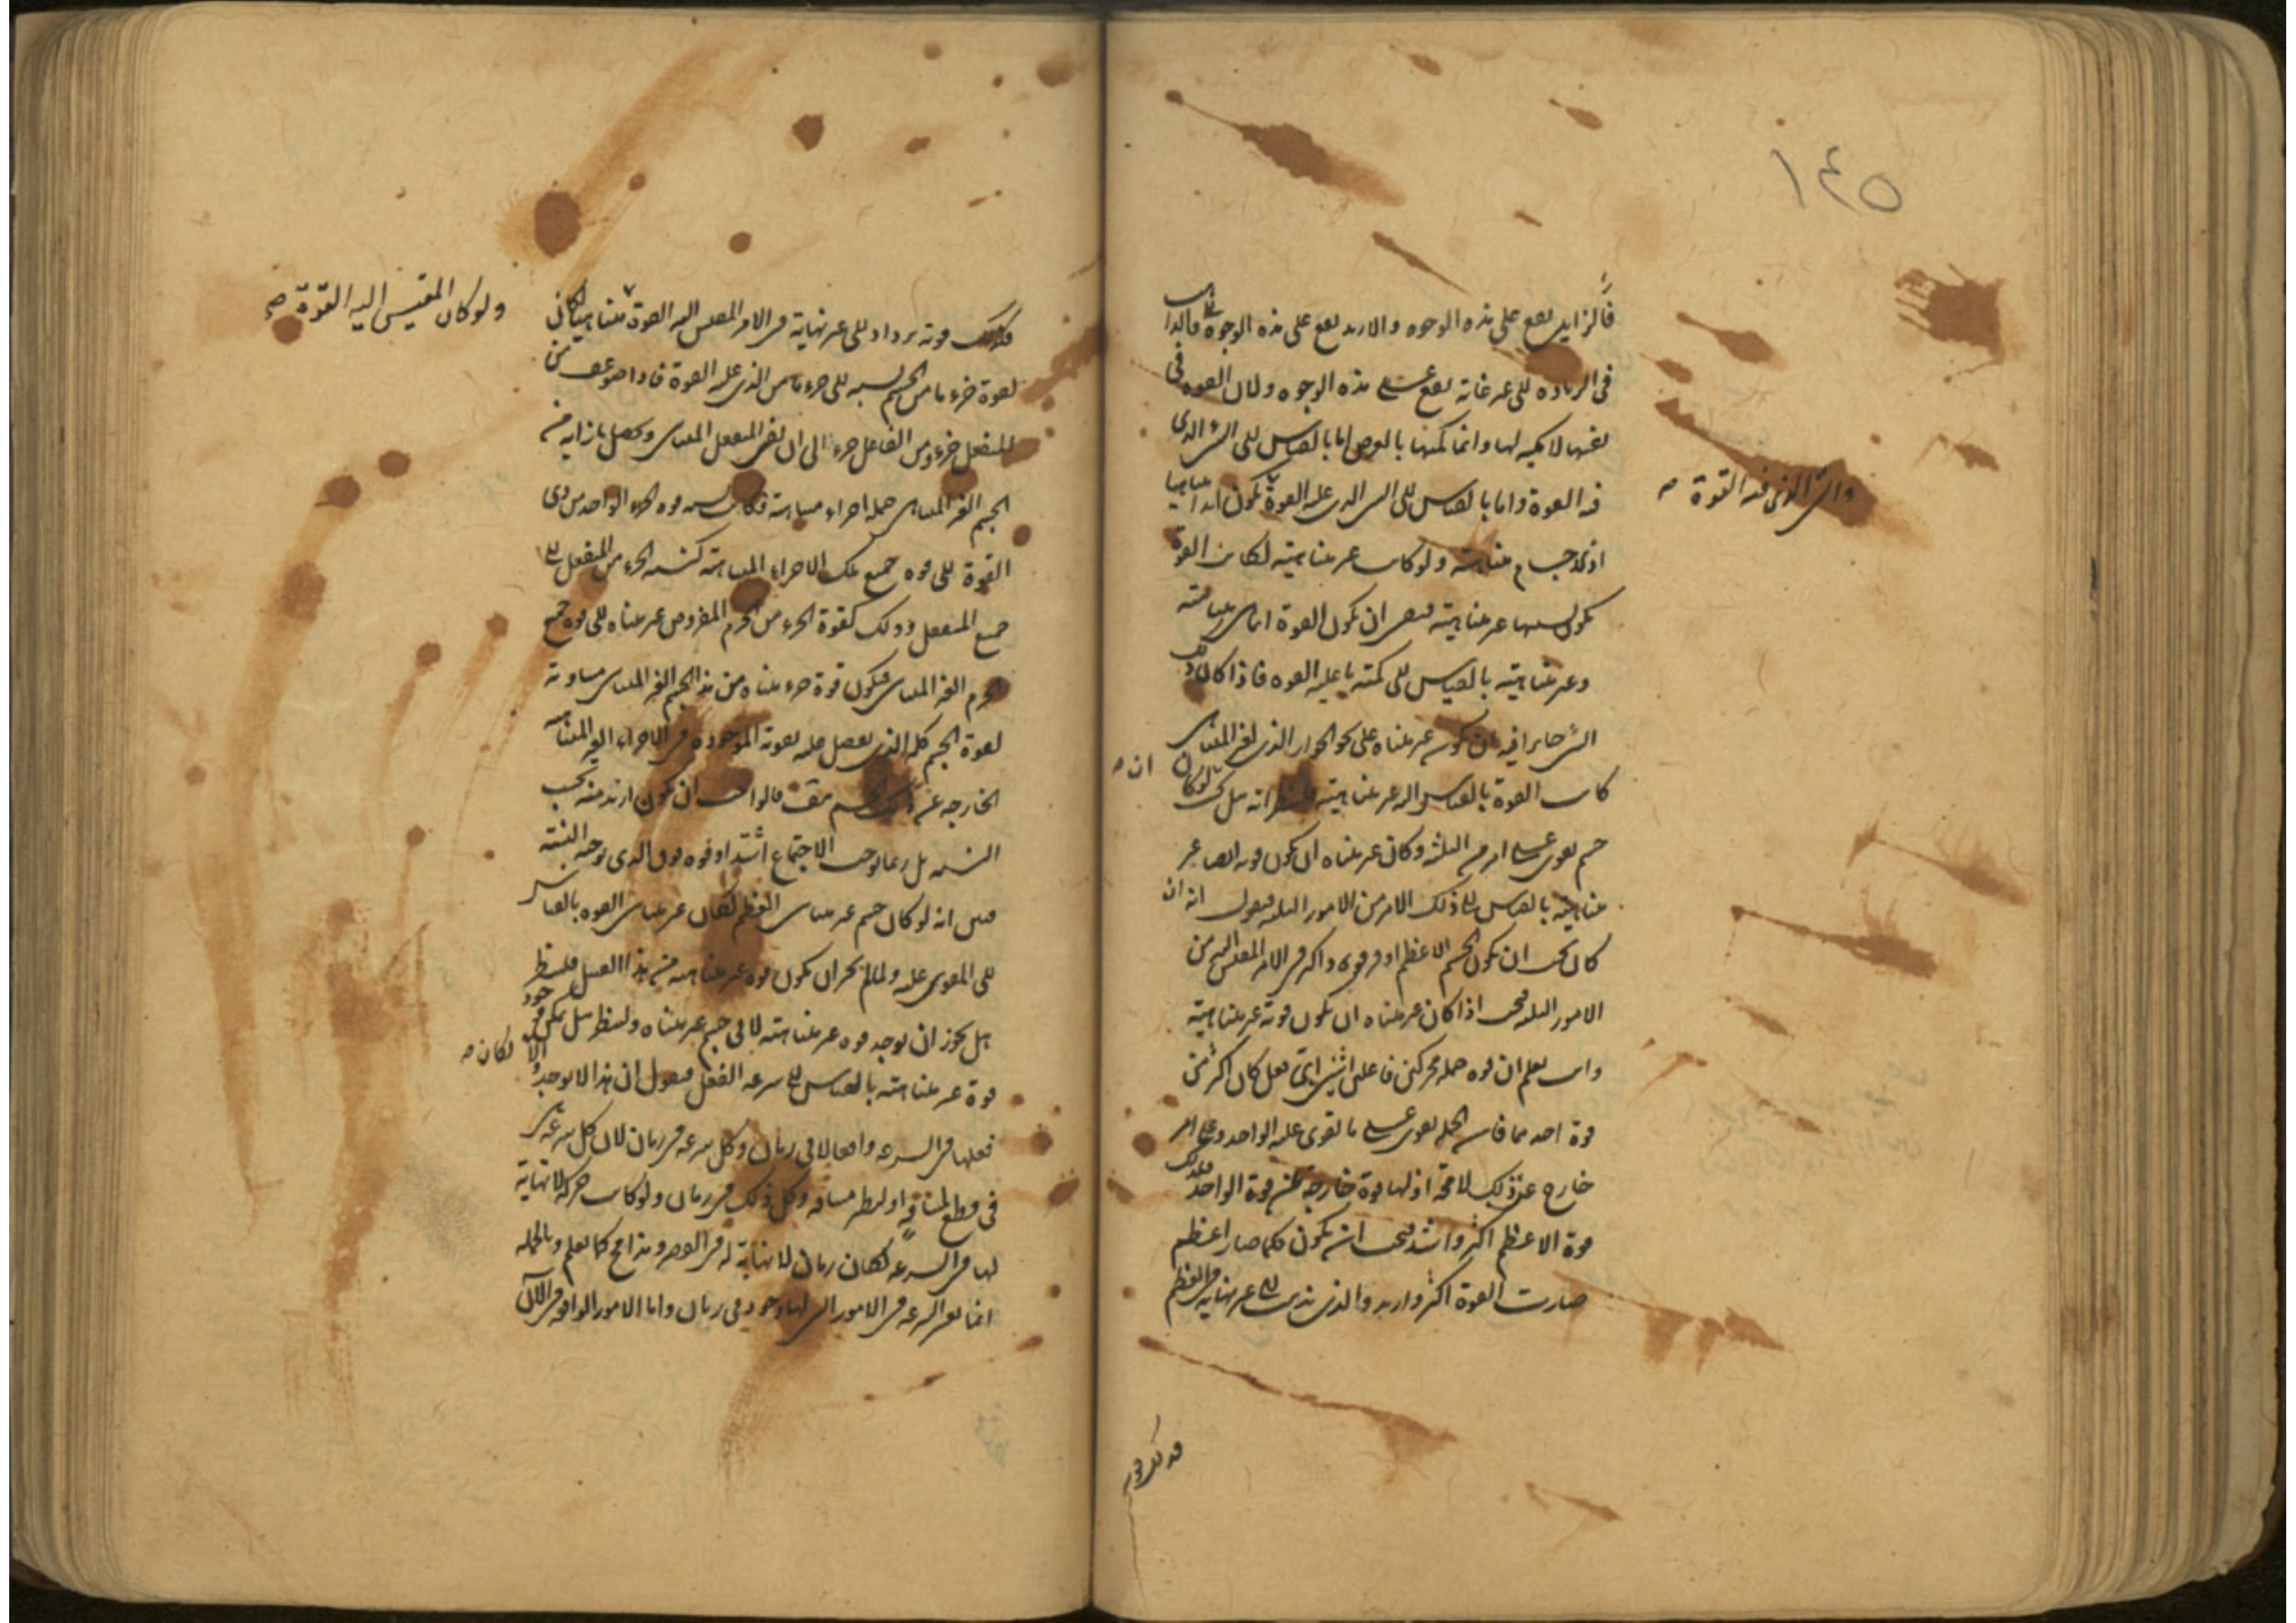 ١٤٥
فالزايد يقع على هذه الوجوه والازيد يقع على هذه الوجوه فالذاهب
فى الزيادة الى غير غاية يقع على هذه الوجوه ولان القوة فى
نفسها لا كمية لها وانما كميتها بالعرض اما بالقياس الى الشىء الذى
فيه القوة واما بالقياس الى الشىء الذى عليه القوة يكون ابدا متناهيا
والشى الذى فيه القوة صح
اذ الاجسام متناهية ولو كانت غير متناهية لكانت القوة
تكون بسببها غير متناهية فبقى ان تكون القوة انما هى متناهية
وغير متناهية بالقياس الى كمية ما عليه القوة فاذا كان ذلك
الشى جايزا فيه ان يكون غير متناه على نحو الجواز الذى لغير المتناهى
كانت القوة بالقياس اليه غير متناهية فلننظر انه هل لو كان
ان صح
جسم يقوى على امر من الثلثة وكان غير متناه ان يكون قوته ايضا غير
متناهية بالقياس الى ذلك الامر من الامور الثلثة فنقول انه ان
كان يجب ان يكون الجسم الاعظم اوفر قوة واكثر فى الامر المقيس اليه من
الامور الثلثة فيجب اذا كان غير متناه ان يكون قوته غير متناهية
وانت تعلم ان قوة جملة محركين فاعلين اثنين اى فعل كان اكثر من
قوة احدهما فان الجملة يقوى على ما يقوى عليه الواحد وعلى امر
خارج عن ذلك لا محة اذ لها قوة خارجة عن قوة الواحد فلذلك
قوة الاعظم اكثر واشد فيجب ان يكون كلما صار اعظم
صارت القوة اكثر وازيد والذى يذهب الى غير نهاية فى العظم
فذلك قوته
فذلك قوته يزداد الى غير نهاية فى الامر المقيس اليه القوة متناهيا لكانت
ولو كان المقيس اليه القوة صح
لقوة جزء ما من الجسم نسبة الى جزء ما من الذى عليه القوة فاذا ضوعف من
المنفعل جزء ومن الفاعل جزء الى ان يفنى المنفعل المتناهى وحصل بازايه من
الجسم الغير المتناهى جملة اجزاء متناهية فكانت نسبة قوة الجزء الواحد من ذى
القوة الى قوة جميع تلك الاجزاء المتناهية كنسبة الجزء من المنفعل الى
جميع المنفعل وذلك كقوة الجزء من الجرم المفروض غير متناه الى قوة جميع
الجرم الغير المتناهى فيكون قوة جزء متناه من هذا الجسم الغير المتناهى مساوية
لقوة الجسم كله الذى يفضل عليه بقوته الموجودة فى الاجزاء الغير المتناهية
الخارجة عن ذلك الجسم هف فالواجب ان يكون ازيد منه بحسب
النسبة بل ربما اوجب الاجتماع اشتداد قوة فوق الذى توجبه النسبة
فبين انه لو كان جسم غير متناهى العظم لكان غير متناهى القوة بالقياس
الى المقوى عليه ولما لم يجز ان يكون قوة غير متناهية من هذا القبيل فلننظر
هل يجوز ان يوجد قوة غير متناهية لا فى جسم غير متناه ولننظر هل يمكن وجود
قوة غير متناهية بالقياس الى سرعة الفعل فنقول ان هذا لا يوجد والا
لكان صح
فعلها فى السرعة واقعا لا فى زمان وكل سرعة فى زمان لان كل سرعة هى
فى قطع لمسافة او لنظير مسافة وكل ذلك فى زمان ولو كانت حركة لا نهاية
لها فى السرعة لكان زمان لا نهاية له فى القصر وهذا مح كما تعلم وبالجملة
انما يعتبر السرعة فى الامور التى لها وجود فى زمان واما الامور الواقعة فى الآن